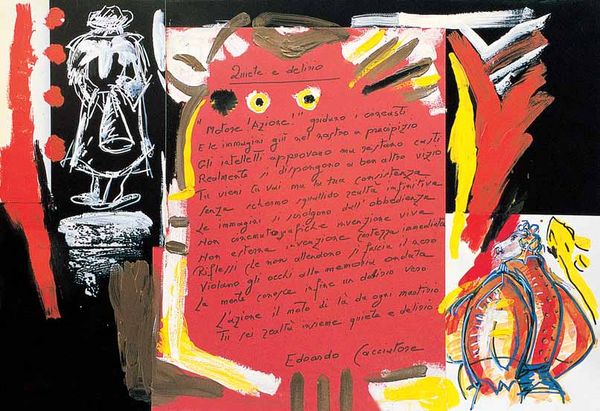 Quiete e delirio
"Motore! Azione!" gridano i cineasti
E le immagini giù nel nastro a precipizio
Gli intelletti approvano ma restano casti
Realmente si dispongono a ben altro vizio
Tu vieni tu vai ma la tua consistenza
Senza richiamo squallido realtà infinitiva
Le immagini si sciolgono dall'obbedienza
Non cinematografiche invenzione viva
Non esterna invenzione certezza immediata
Riflessi che non allendono si faccia il nero
Violano gli occhi alla memoria
La mente conosce infine un delirio vero
L'azione il moto di là da ogni martirio
Tu sei realtà insieme quiete e delirio
Edoardo Cacciatore